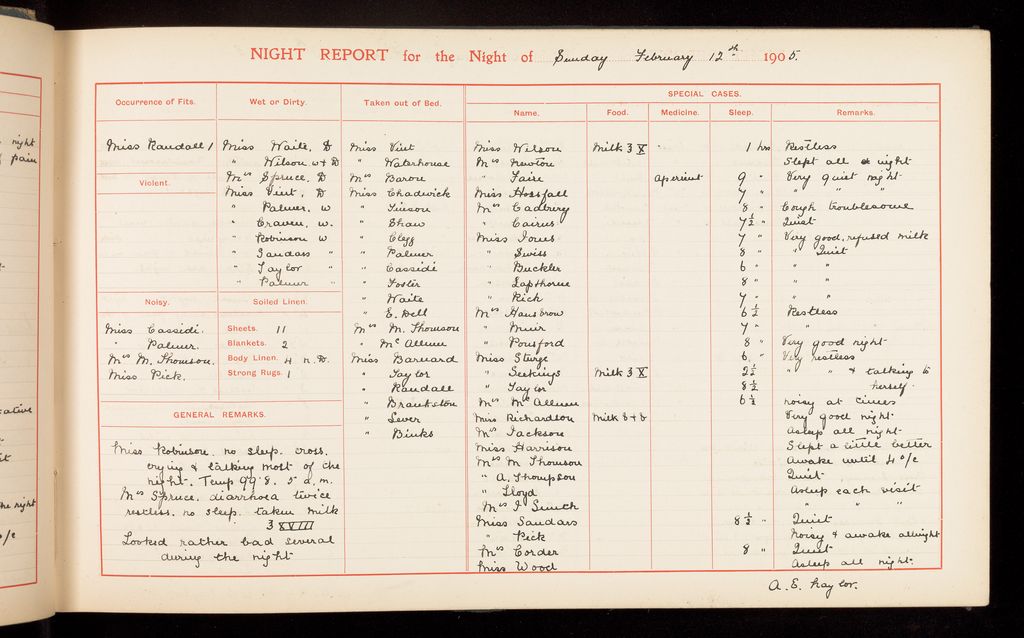 night
pain
cative
it
the night
o/c
NIGHT REPORT for the Night of Sunday February 12th 1905.
Occurrence of Fits.
Miss Randall 1
Violent.
Noisy.
Miss Cassidi.
" Palmer.
Mrs M. Thomson.
Miss Pick.
Wet or Dirty.
Miss Waite, D
" Wilson w + D
Mrs Spruce, D
Miss Vint, D
" Palmer, w
" Craven, w.
" Robinson w
" Sandars "
" Taylor "
" Palmer "
Soiled Linen.
Sheets. 11
Blankets. 2
Body Linen. 4 n. D.
Strong Rugs. 1
GENERAL REMARKS.
Miss Robinson. no sleep. cross.
crying & talking most of the
night. Temp 99.8. 5 a.m.
Mrs Spruce, diarrhoea twice
restless. no sleep. taken milk
℥ XVIII
Looked rather bad several
during the night
Taken out of Bed.
Miss Vint
" Waterhouse
Mrs Baron
Miss Chadwick
" Tinson
" Shaw
" Clegg
" Palmer
" Cassidi
" Foster
" Waite
" E. Dell
Mrs M. Thomson
" McAllum
Miss Barnard
" Taylor
" Randall
" Brankston
" Lever
" Binks
SPECIAL CASES.
Name. Food. Medicine. Sleep. Remarks.
Miss Wilson Milk ℥ X 1 hrs Restless
Mrs Newton Slept all night
" Faire Aperient 9 " Very quiet night
Miss Horsfall 7 " " " "
Mrs Cadbury 8 " Cough troublesome
" Cairns 7½ " Quiet
Miss Jones 7 " Very good, refused milk
" Swiss 8 " " Quiet
" Buckler 6 " " "
" Lapthorne 8 " " "
" Rich 7 " " "
Mrs Hansbrow 6½ Restless
" Muir 7 " "
" Ponsford 8 " Very good night
Miss Sturge 6 " Very restless
" Seekings Milk ℥ X 2½ " " & talking to
" Taylor 8½ herself.
Mrs McAllum 6½ noisy at times
Miss Richardson Milk 8 + 8 Very good night
Mrs Jackson Asleep all night
Miss Harrison Slept a little better
Mrs M Thomson Awake until 4 o/c
" A. Thompson Quiet
" Lloyd Asleep each visit
Mrs J. Smith " " "
Miss Sandars 8½ " Quiet
" Pick Noisy & awake allnight
Mrs Corder 8 " Quiet
Miss Wood Asleep all night.
A. E. Naylor.